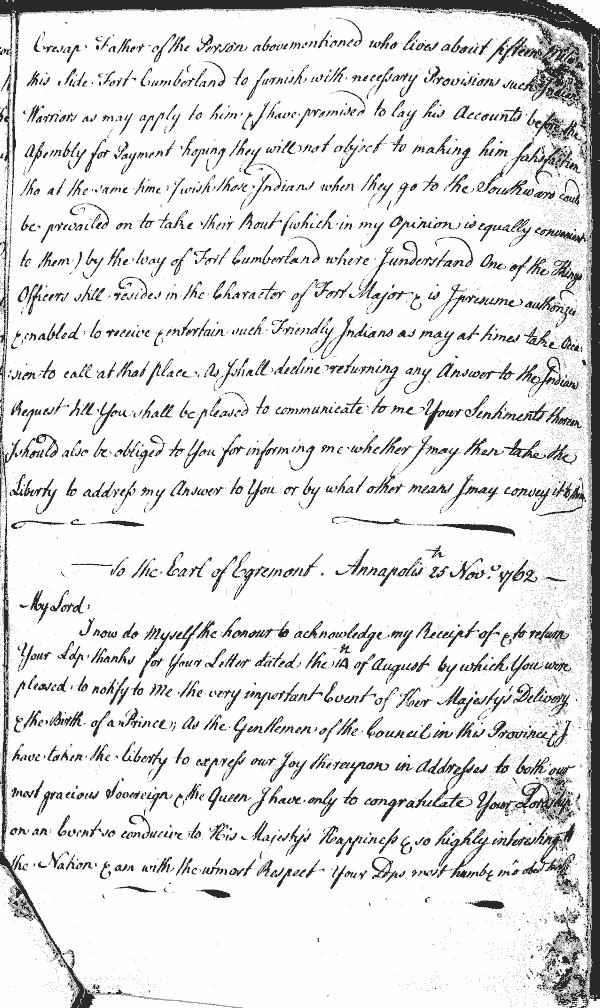 Cresap Father of the Person abovementioned who lives about fifteen Miles
this Side Fort Cumberland to furnish with necessary Provisions such
Warriors as may apply to him & I have promised to lay his Accounts before the
Assembly for Payment hoping they will not object to making him satisfaction
tho at the same time I wish those Indians when they go to the Southward could
be prevailed on to take their Rout (which in my Opinion is equally convenient
to them) by the way of Fort Cumberland where I understand One of the Kings
Officers still resides in the Character of Fort Major & is I presume authorized
& enabled to receive & entertain such Friendly Indians as may at times take Occa-
-sion to call at that place. As I shall decline returning any Answer to the Indian
Request till You shall be pleased to communicate to me Your Sentiments thereon
I should also be obliged to You for informing me whether I may then take the
Liberty to address my Answer to You or by what other means I may convey it to him.
To the Earl of Egremont. Annapolis 25th Novr. 1762
My Lord,
I now do myself the honour to acknowledge my Receipt of & to return
Your Ldp thanks for Your Letter dated the of August by which You were
pleased to notify to me the very important Event of Her Majesty's Delivery
& the Birth of a Prince; As the Gentlemen of the Council in this Province & I
have taken the Liberty to express our Joy thereupon in Addresses to both our
most gracious Sovereign & the Queen I have only to congratulate Your Lordship
on an Event so conducive to His Majesty's Happiness & so highly interesting to
the Nation & am with the utmost Respect Your Ldps most humb & mo obed